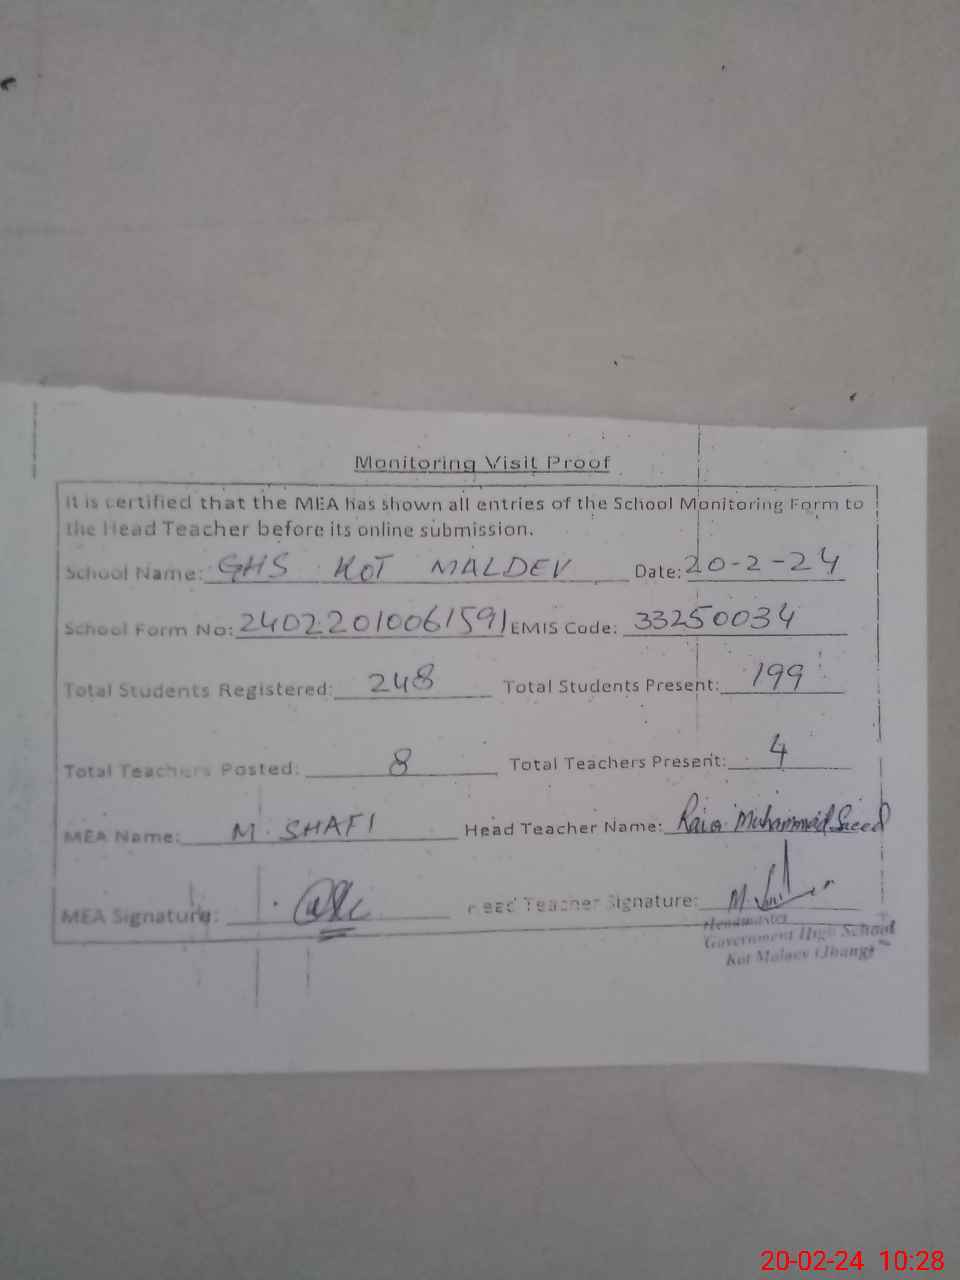 Monitoring Visit Proof
It is certified that the MEA has shown all entries of the School Monitoring Form to
the Head Teacher before its online submission.
School Name: GHS KOT MALDEV Date: 20-2-24
School Form No: 24022010061591 EMIS Code: 33250034
Total Students Registered: 248 Total Students Present: 199
Total Teachers Posted: 8 Total Teachers Present: 4
MEA Name: M. SHAFI Head Teacher Name: Muhammad Saeed
MEA Signature: Head Teacher Signature:
Headmaster
Government High School
Kot Maldev (Jhang)
20-02-24 10:28